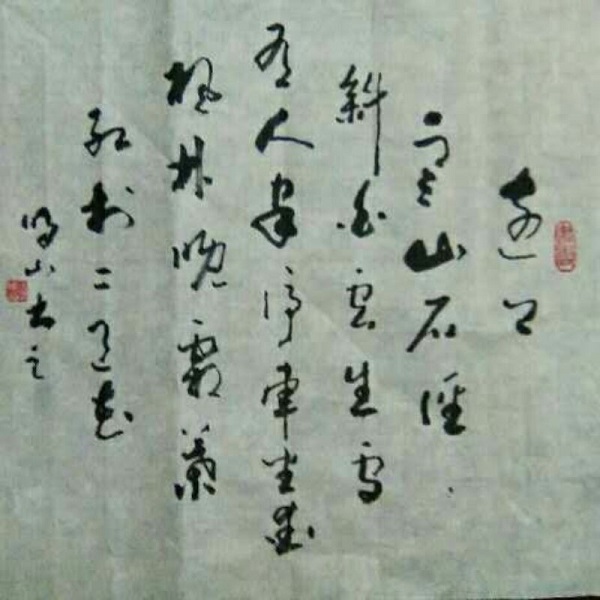 远上
寒山石径
斜白雲生处
有人家停車坐爱
枫林晚霜葉
红於二月花
山书之